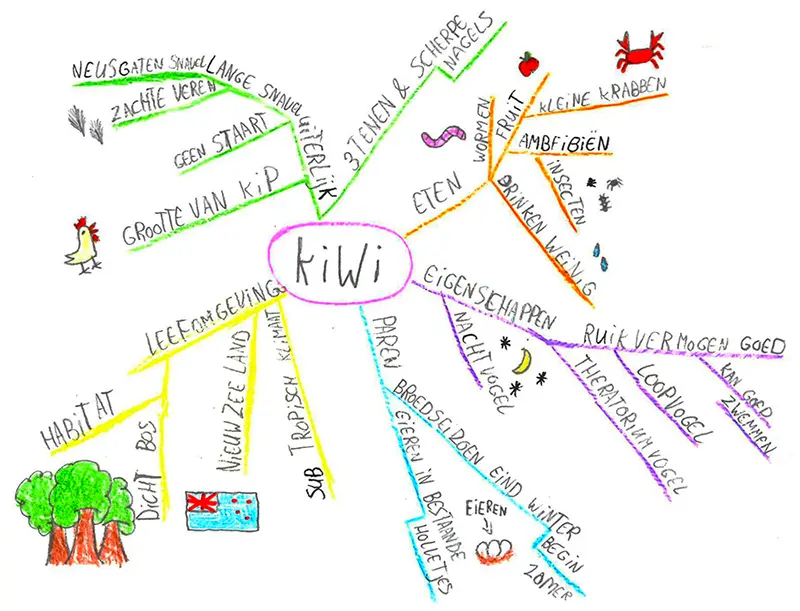 KiWi
UiTERLIJK
LANGE SNAVEL
NEUSGATEN SNAVEL
ZACHTE VEREN
GEEN STAART
GROOTTE VAN KIP
3 TENEN & SCHERPE
NAGELS
ETEN
WORMEN
FRUIT
KLEINE KRABBEN
AMBFIBIËN
INSECTEN
DRINKEN WEINIG
EIGENSCHAPPEN
NACHTVOGEL
RUIKVERMOGEN GOED
THERATORIUMVOGEL
LOOPVOGEL
KAN GOED
ZWEMMEN
PAREN
BROEDSEIZOEN EIND WINTER
BEGIN
ZOMER
EIEREN IN BESTAANDE
HOLLETJES
EiEREN
LEEFOMGEVING
HABITAT
DICHT BOS
NIEUWZEELAND
SUB TROPISCH KLIMAAT